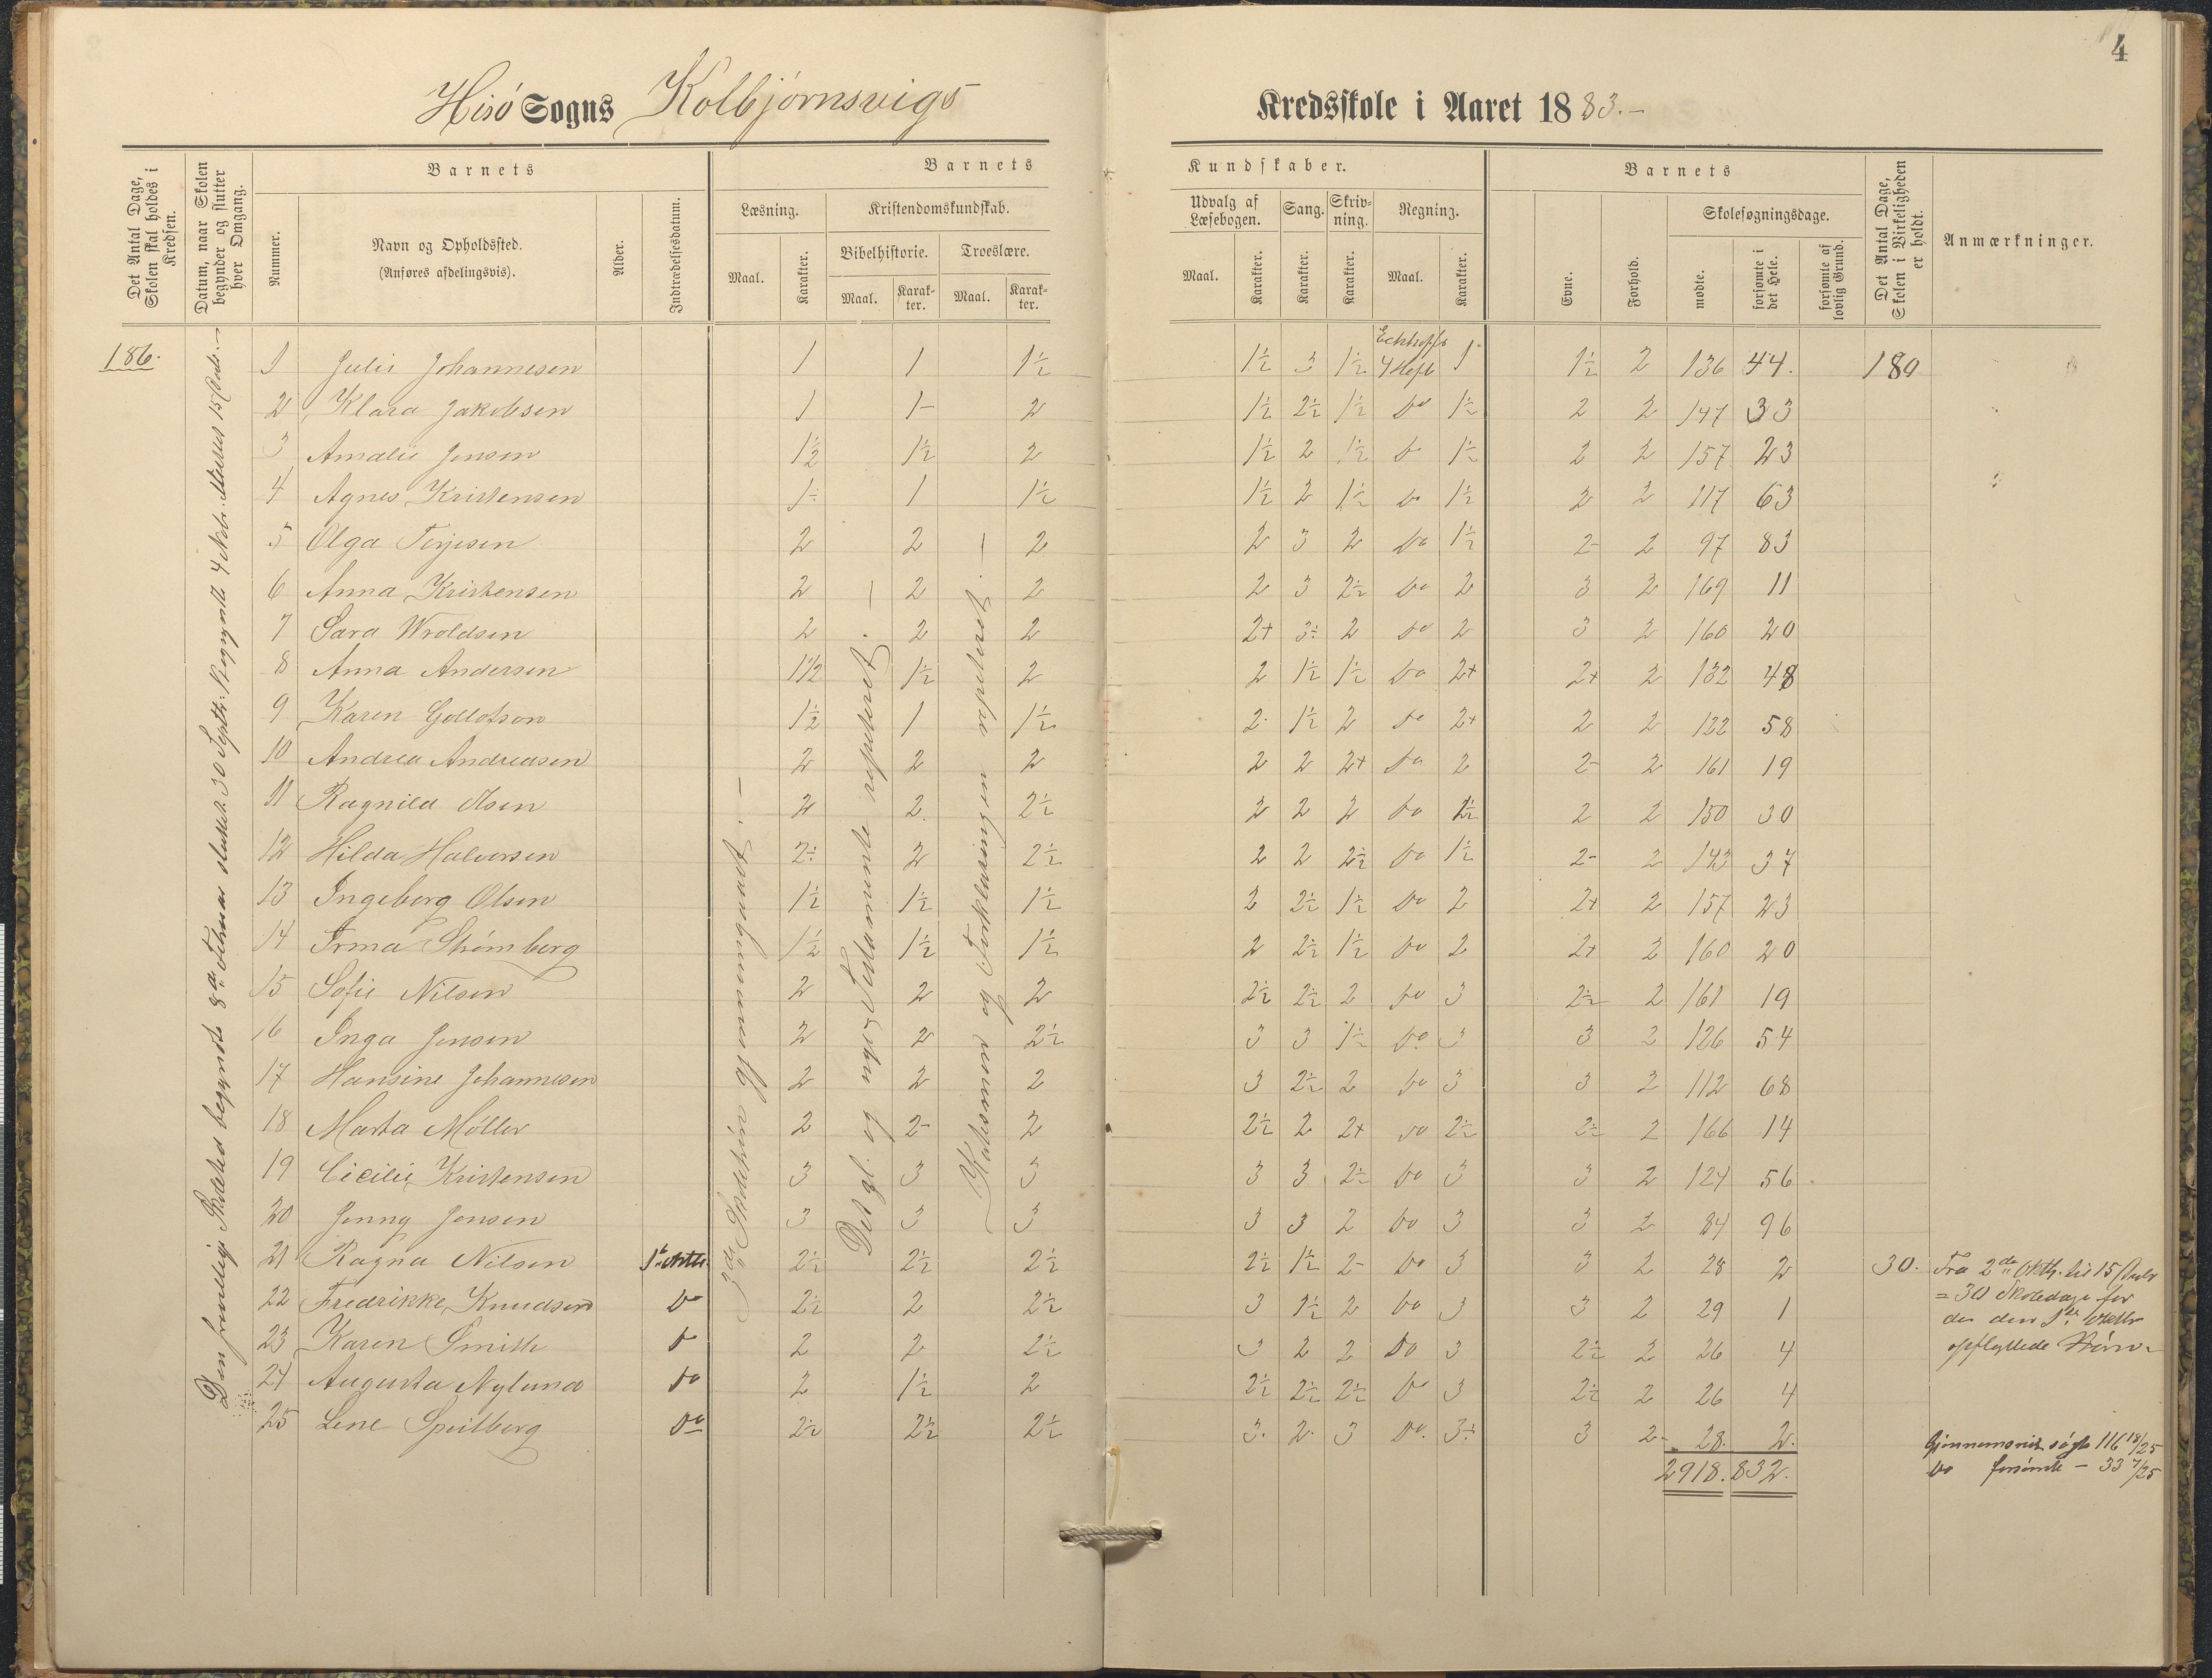 4
Hisö Sogns Kolbjörnsvigs Kredsskole i Aaret 1883.-
Det Antal Dage, Skolen skal holdes i Kredsen.
Datum, naar Skolen begynder og slutter hver Omgang.
Nummer.
Barnets
Navn og Opholdssted.
(Anføres afdelingsvis).
Alder.
Indtrædelsesdatum.
Barnets Kundskaber.
Læsning.
Maal.
Karakter.
Kristendomskundskab.
Bibelhistorie.
Maal.
Karakter.
Troeslære.
Maal.
Karakter.
Udvalg af Læsebogen.
Maal.
Karakter.
Sang.
Karakter.
Skrivning.
Karakter.
Regning.
Maal.
Karakter.
Barnets
Evne.
Forhold.
Skolesøgningsdage.
mødte.
forsømte i det Hele.
forsømte af lovlig Grund.
Det Antal Dage, Skolen i Virkeligheden er holdt.
Anmærkninger.
186.
Det gl. og nye Testamente repeteret.
Katesismen og Forklaringen repeteret.
1 Julie Johannesen 1 1 1½ 1½ 3 1½ 4 Hefte 1 1½ 2 136 44. 180
2 Klara Jakobsen 1 1- 2 1½ 2½ 1½ do 1½ 2 2 147 33
3 Amalie Jensen 1½ 1½ 2 1½ 2 1½ do 1½ 2 2 157 23
4 Agnes Kristensen 1÷ 1 1½ 1½ 2 1½ do 1½ 2 2 117 63
5 Olga Terjesen 2 2 2 2 3 2 do 1½ 2- 2 97 83
6 Anna Kristensen 2 2 2 2 3 2½ do 2 3 2 169 11
7 Sara Wroldsen 2 2 2 2+ 3÷ 2 do 2 3 2 160 20
8 Anna Andersen 1½ 1½ 2 2 1½ 1½ do 2+ 2+ 2 132 48
9 Karen Gollofson 1½ 1 1½ 2 1½ 2 do 2+ 2 2 122 58
10 Andrea Andreasen 2 2 2 2 2 2+ do 2 2- 2 161 19
11 Ragnild Olsen 2 2 2½ 2 2 2 do 1½ 2 2 150 30
12 Hilda Halvorsen 2÷ 2 2½ 2 2 2½ do 1½ 2- 2 143 37
13 Ingeborg Olsen 1½ 1½ 1½ 2 2½ 1½ do 2 2+ 2 157 23
14 Irma Strömberg 1½ 1½ 1½ 2 2½ 1½ do 2 2+ 2 160 20
15 Sofie Nilsen 2 2 2 2½ 2½ 2 do 3 2½ 2 161 19
16 Inga Jensen 2 2 2½ 3 3 1½ do 3 3 2 126 54
17 Hansine Johannesen 2 2 2 3 2½ 2 do 3 3 2 112 68
18 Marta Möller 2 2- 2 2½ 2 2+ do 2½ 2½ 2 166 14
19 Cicilie Kristensen 3 3 3 3 3 2½ do 3 3 2 124 56
20 Jenny Jensen 3 3 3 3 3 2 do 3 3 2 84 96
21 Ragna Nilsen 2½ 2½ 2½ 2½ 1½ 2- do 3 3 2 28 2 30. Fra 2de Oktb. til 15
22 Fredrikke Knudsen do 2½ 2 2½ 3 1½ 2 do 3 3 2 29 1 = 30 Skoledage for
23 Karen Smith do 2 2 2½ 3 2 2 do 3 2½ 2 26 4 de den 1ste
24 Augusta Nylund do 2 1½ 2 2½ 2½ 2½ do 3 2½ 2 26 4 opflyttede Börn.-
25 Lene Speilberg do 2½ 2½ 2½ 3. 2. 3 do. 3÷ 3 2- 28. 2.
2918. 832.
Gjennemsnit. sögte 116 18/25
do forsömte - 33 7/25